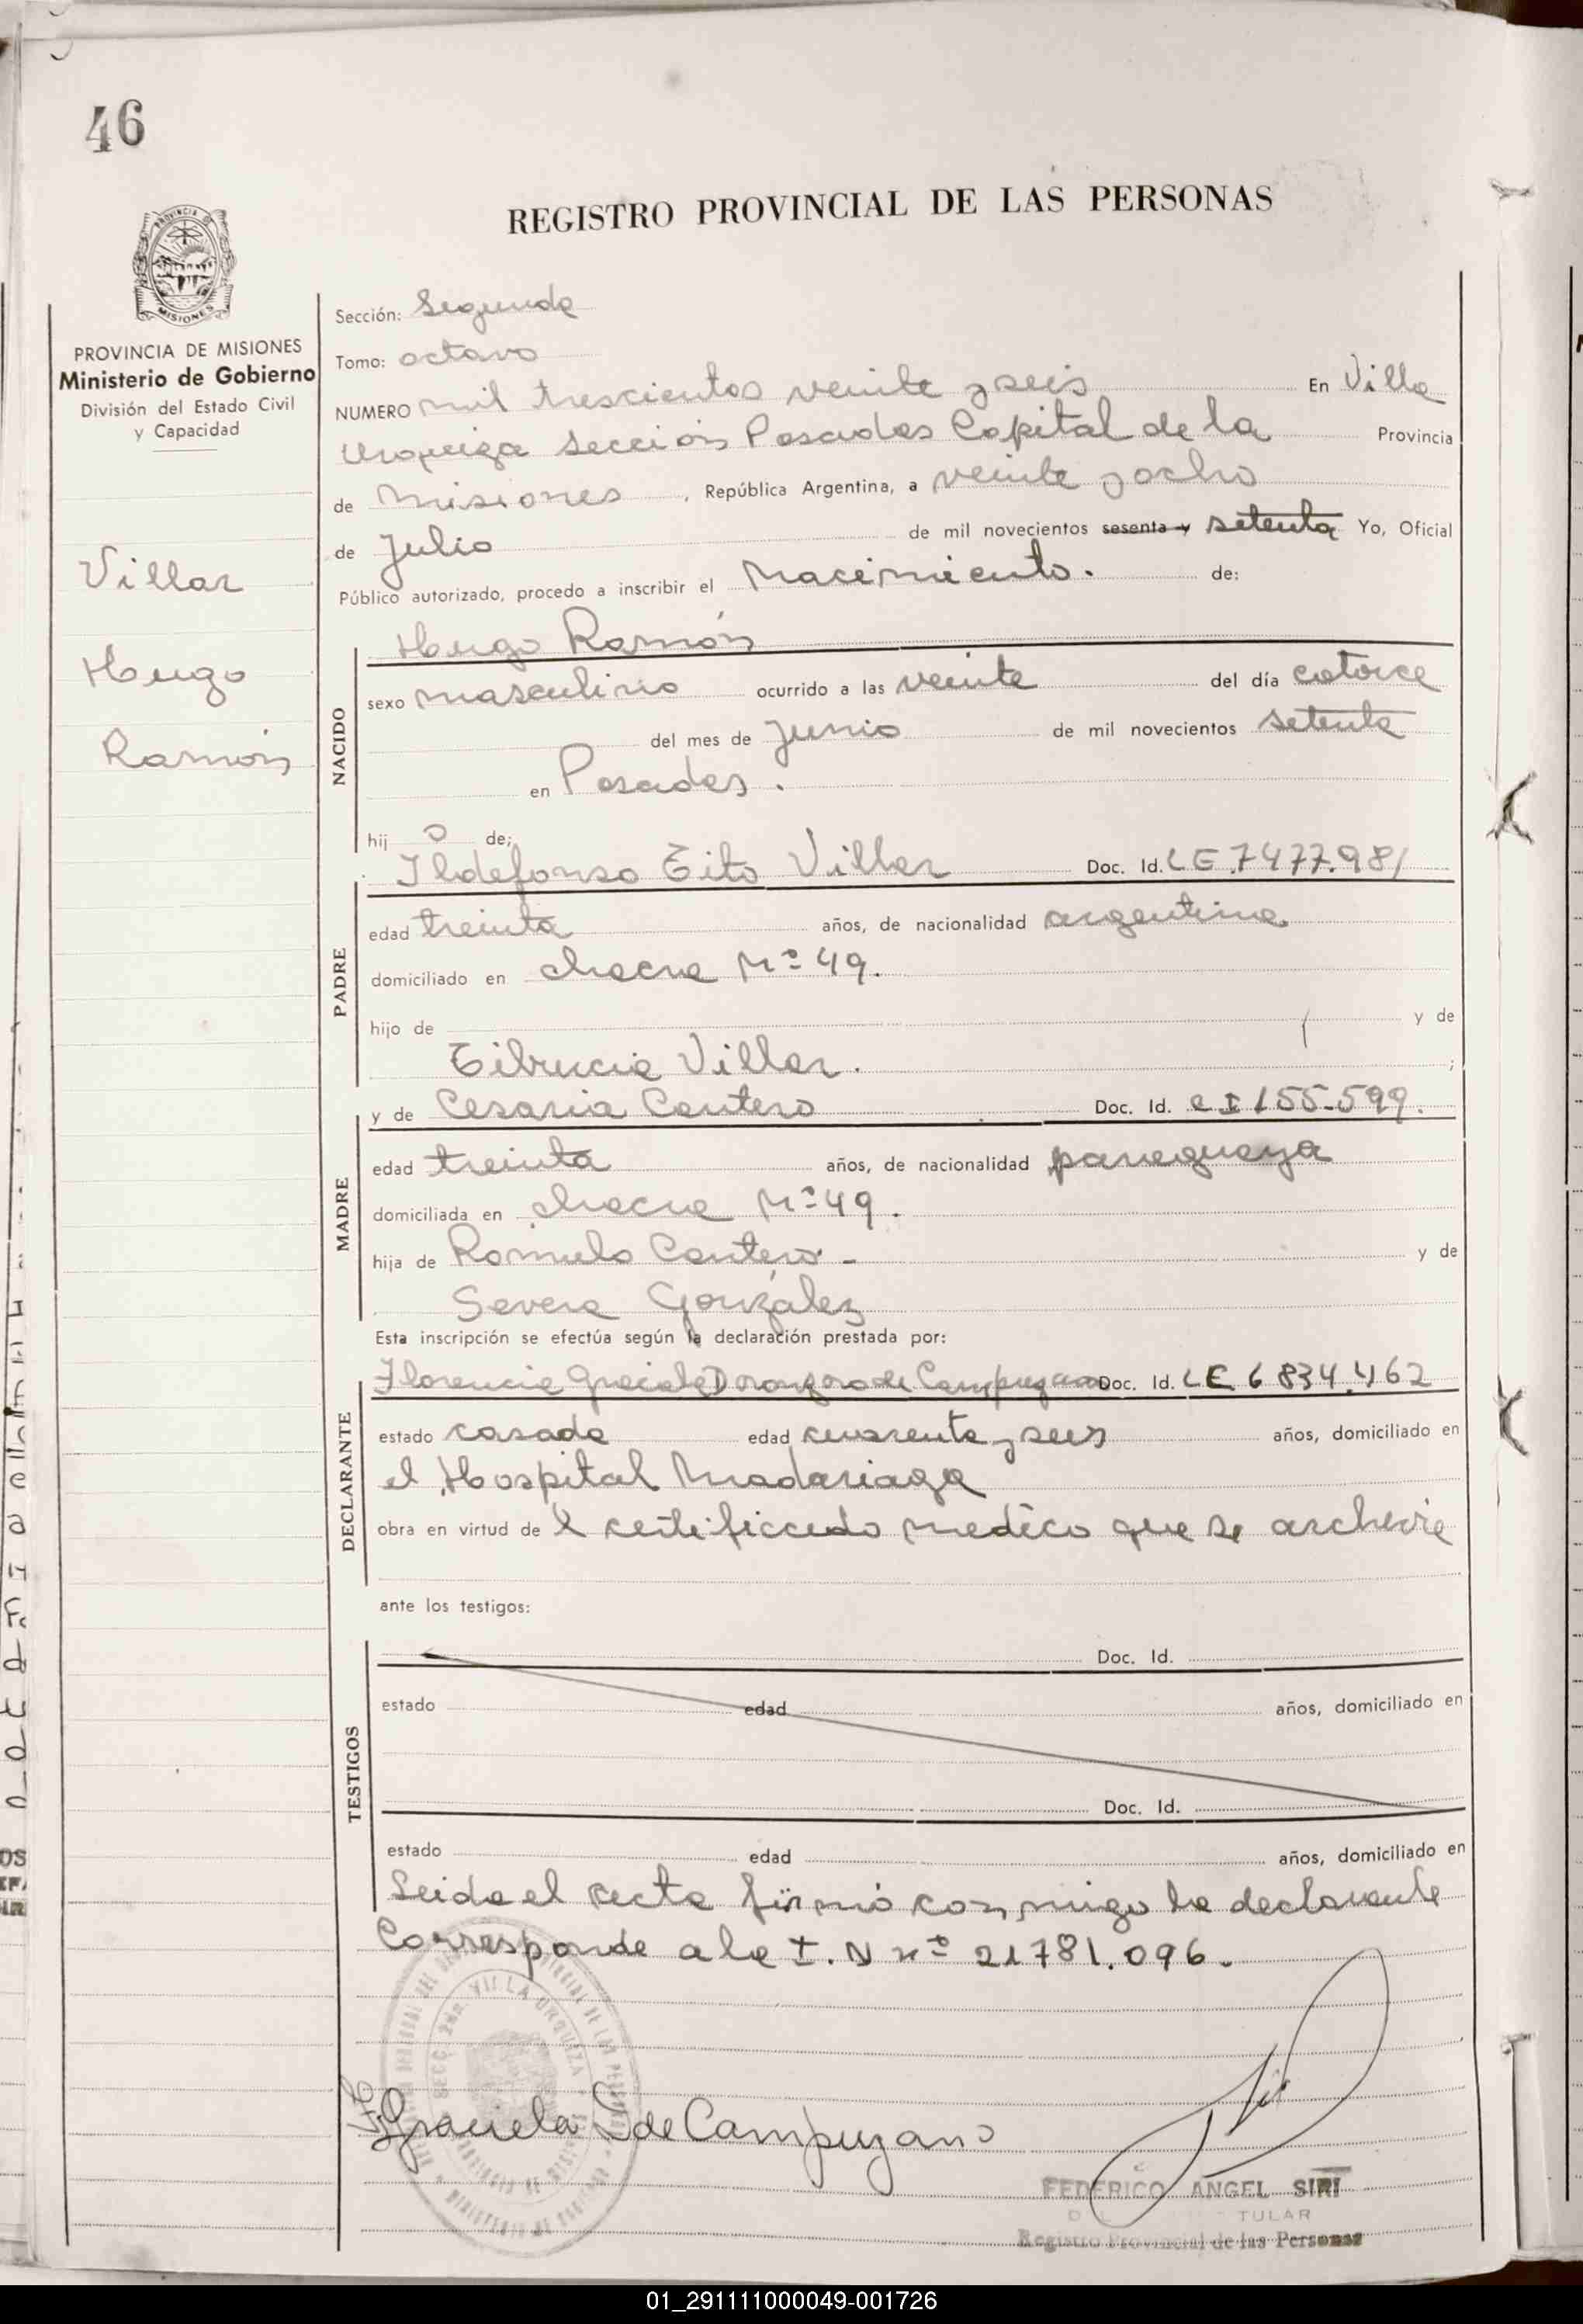 46
REGISTRO PROVINCIAL DE LAS PERSONAS
PROVINCIA DE
MISIONES
PROVINCIA DE MISIONES
Ministerio de Gobierno
División del Estado Civil
y Capacidad
Villar
Hugo
Ramón
Sección: Segunda
Tomo: octavo
NUMERO mil trescientos veinte y seis En Villa
Urquiza Sección Posadas Capital de la Provincia
de Misiones, República Argentina, a veinte y ocho
de Julio de mil novecientos sesenta y setenta Yo, Oficial
Público autorizado, procedo a inscribir el Nacimiento. de:
NACIDO
Hugo Ramón
sexo masculino ocurrido a las veinte del día catorce
del mes de Junio de mil novecientos setenta
en Posadas.
hij o de;
Ildefonso Tito Villar Doc. Id. LE.7477.981
PADRE
edad treinta años, de nacionalidad argentina
domiciliado en chacra Nº 49.
hijo de y de
Tibrucia Villar. ;
y de Cesaria Cantero Doc. Id. CI 155-599.
MADRE
edad treinta años, de nacionalidad paraguaya
domiciliada en chacra Nº 49.
hija de Romulo Cantero - y de
Severa González
Esta inscripción se efectúa según la declaración prestada por:
Florencia Graciela de Campuzano Doc. Id. LE 6 834.462
DECLARANTE
estado casada edad cuarenta y seis años, domiciliado en
el Hospital Madariaga
obra en virtud de l certificado medico que se archiva
ante los testigos:
TESTIGOS
Doc. Id.
estado edad años, domiciliado en
Doc. Id.
estado edad años, domiciliado en
Leida el acta firmó conmigo la declarante
Corresponde a la I. N nº 21781.096.
SECC. 2da. VILLA URQUIZA
PROVINCIA DE MISIONES
Graciela D de Campuzano
FEDERICO ANGEL SIRI
TULAR
Registro Provincial de las Personas
01_291111000049-001726